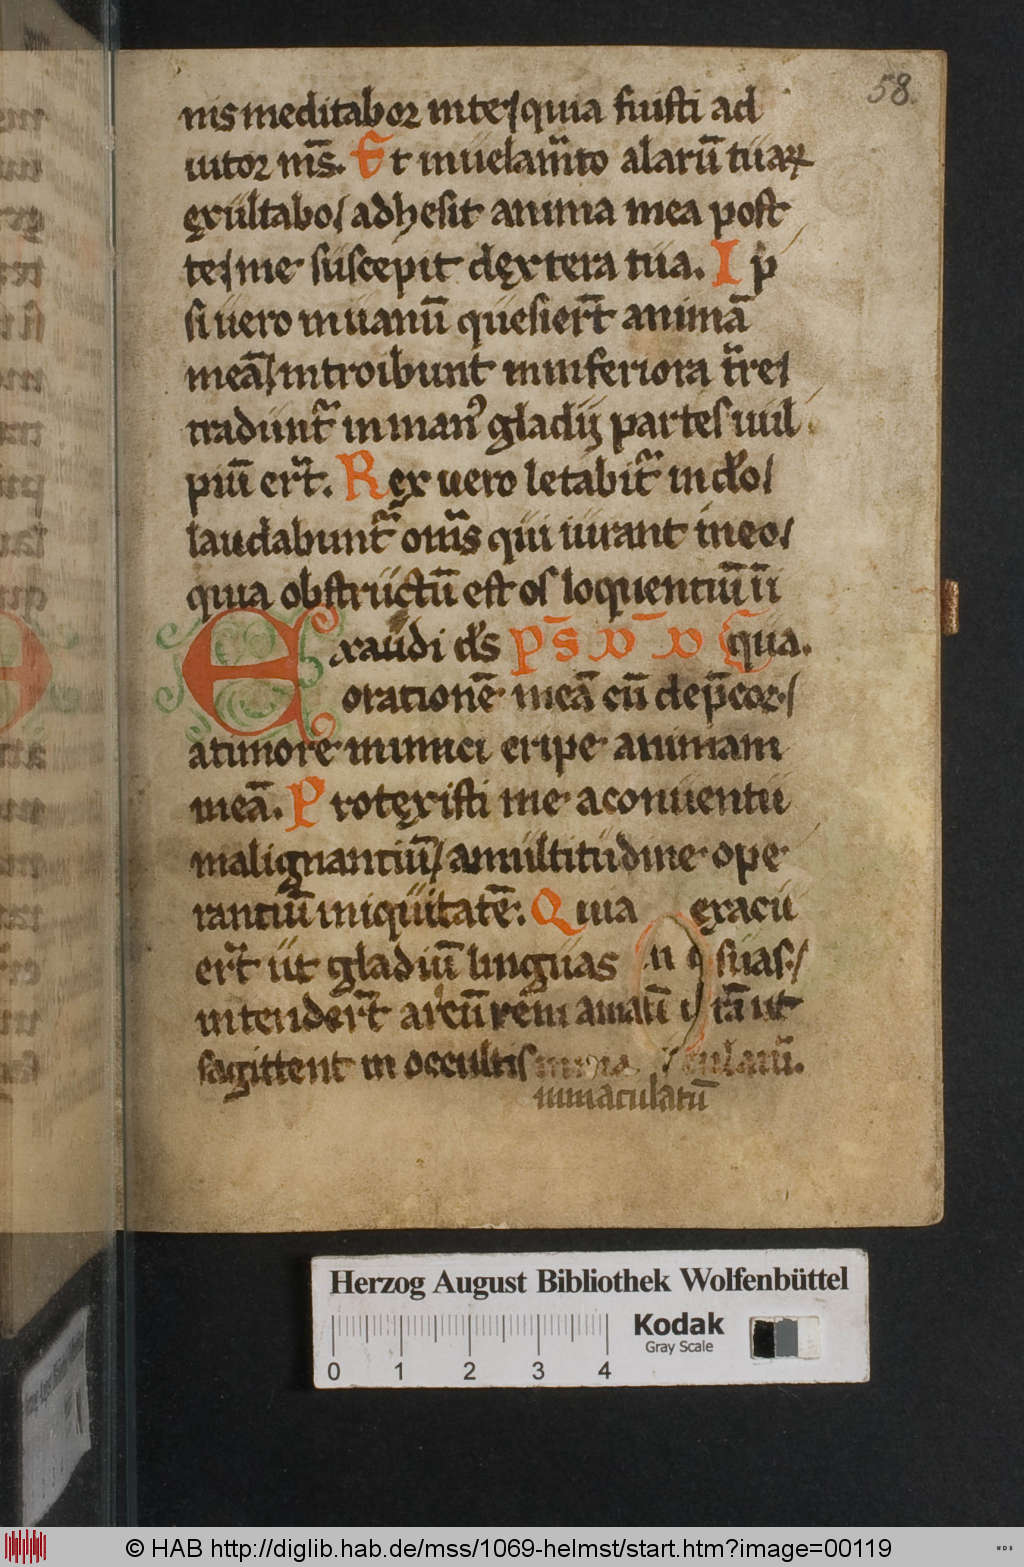 58.
nis meditabor in te / quia fuisti ad
iutor ms̄. Et in uelam̄to alarū tuaꝝ
exultabo / adhesit anima mea post
te / me suscepit dextera tua. I p
si uero in uanū quesier̄t animā
meā / introibunt in inferiora t̄re /
tradunt̄ in man᾽ gladij partes uul
piū er̄t. Rex uero letabit̄ in dō /
laudabunt̄ om̄s qui iurant in eo /
quia obstructū est os loquentiū in
Exaudi ds̄ qua.
orationē meā cū dep̄cor /
a timore inimici eripe animam
meā. Protexisti me a conuentu
malignantiū / a multitudine ope
rantiū iniquitatē. Quia exacu
er̄t ut gladiū linguas suas /
intender̄t arcū rem amarā ut
sagittent in occultis
immaculatū
Herzog August Bibliothek Wolfenbüttel
0 1 2 3 4
Kodak
Gray Scale
© HAB http://diglib.hab.de/mss/1069-helmst/start.htm?image=00119